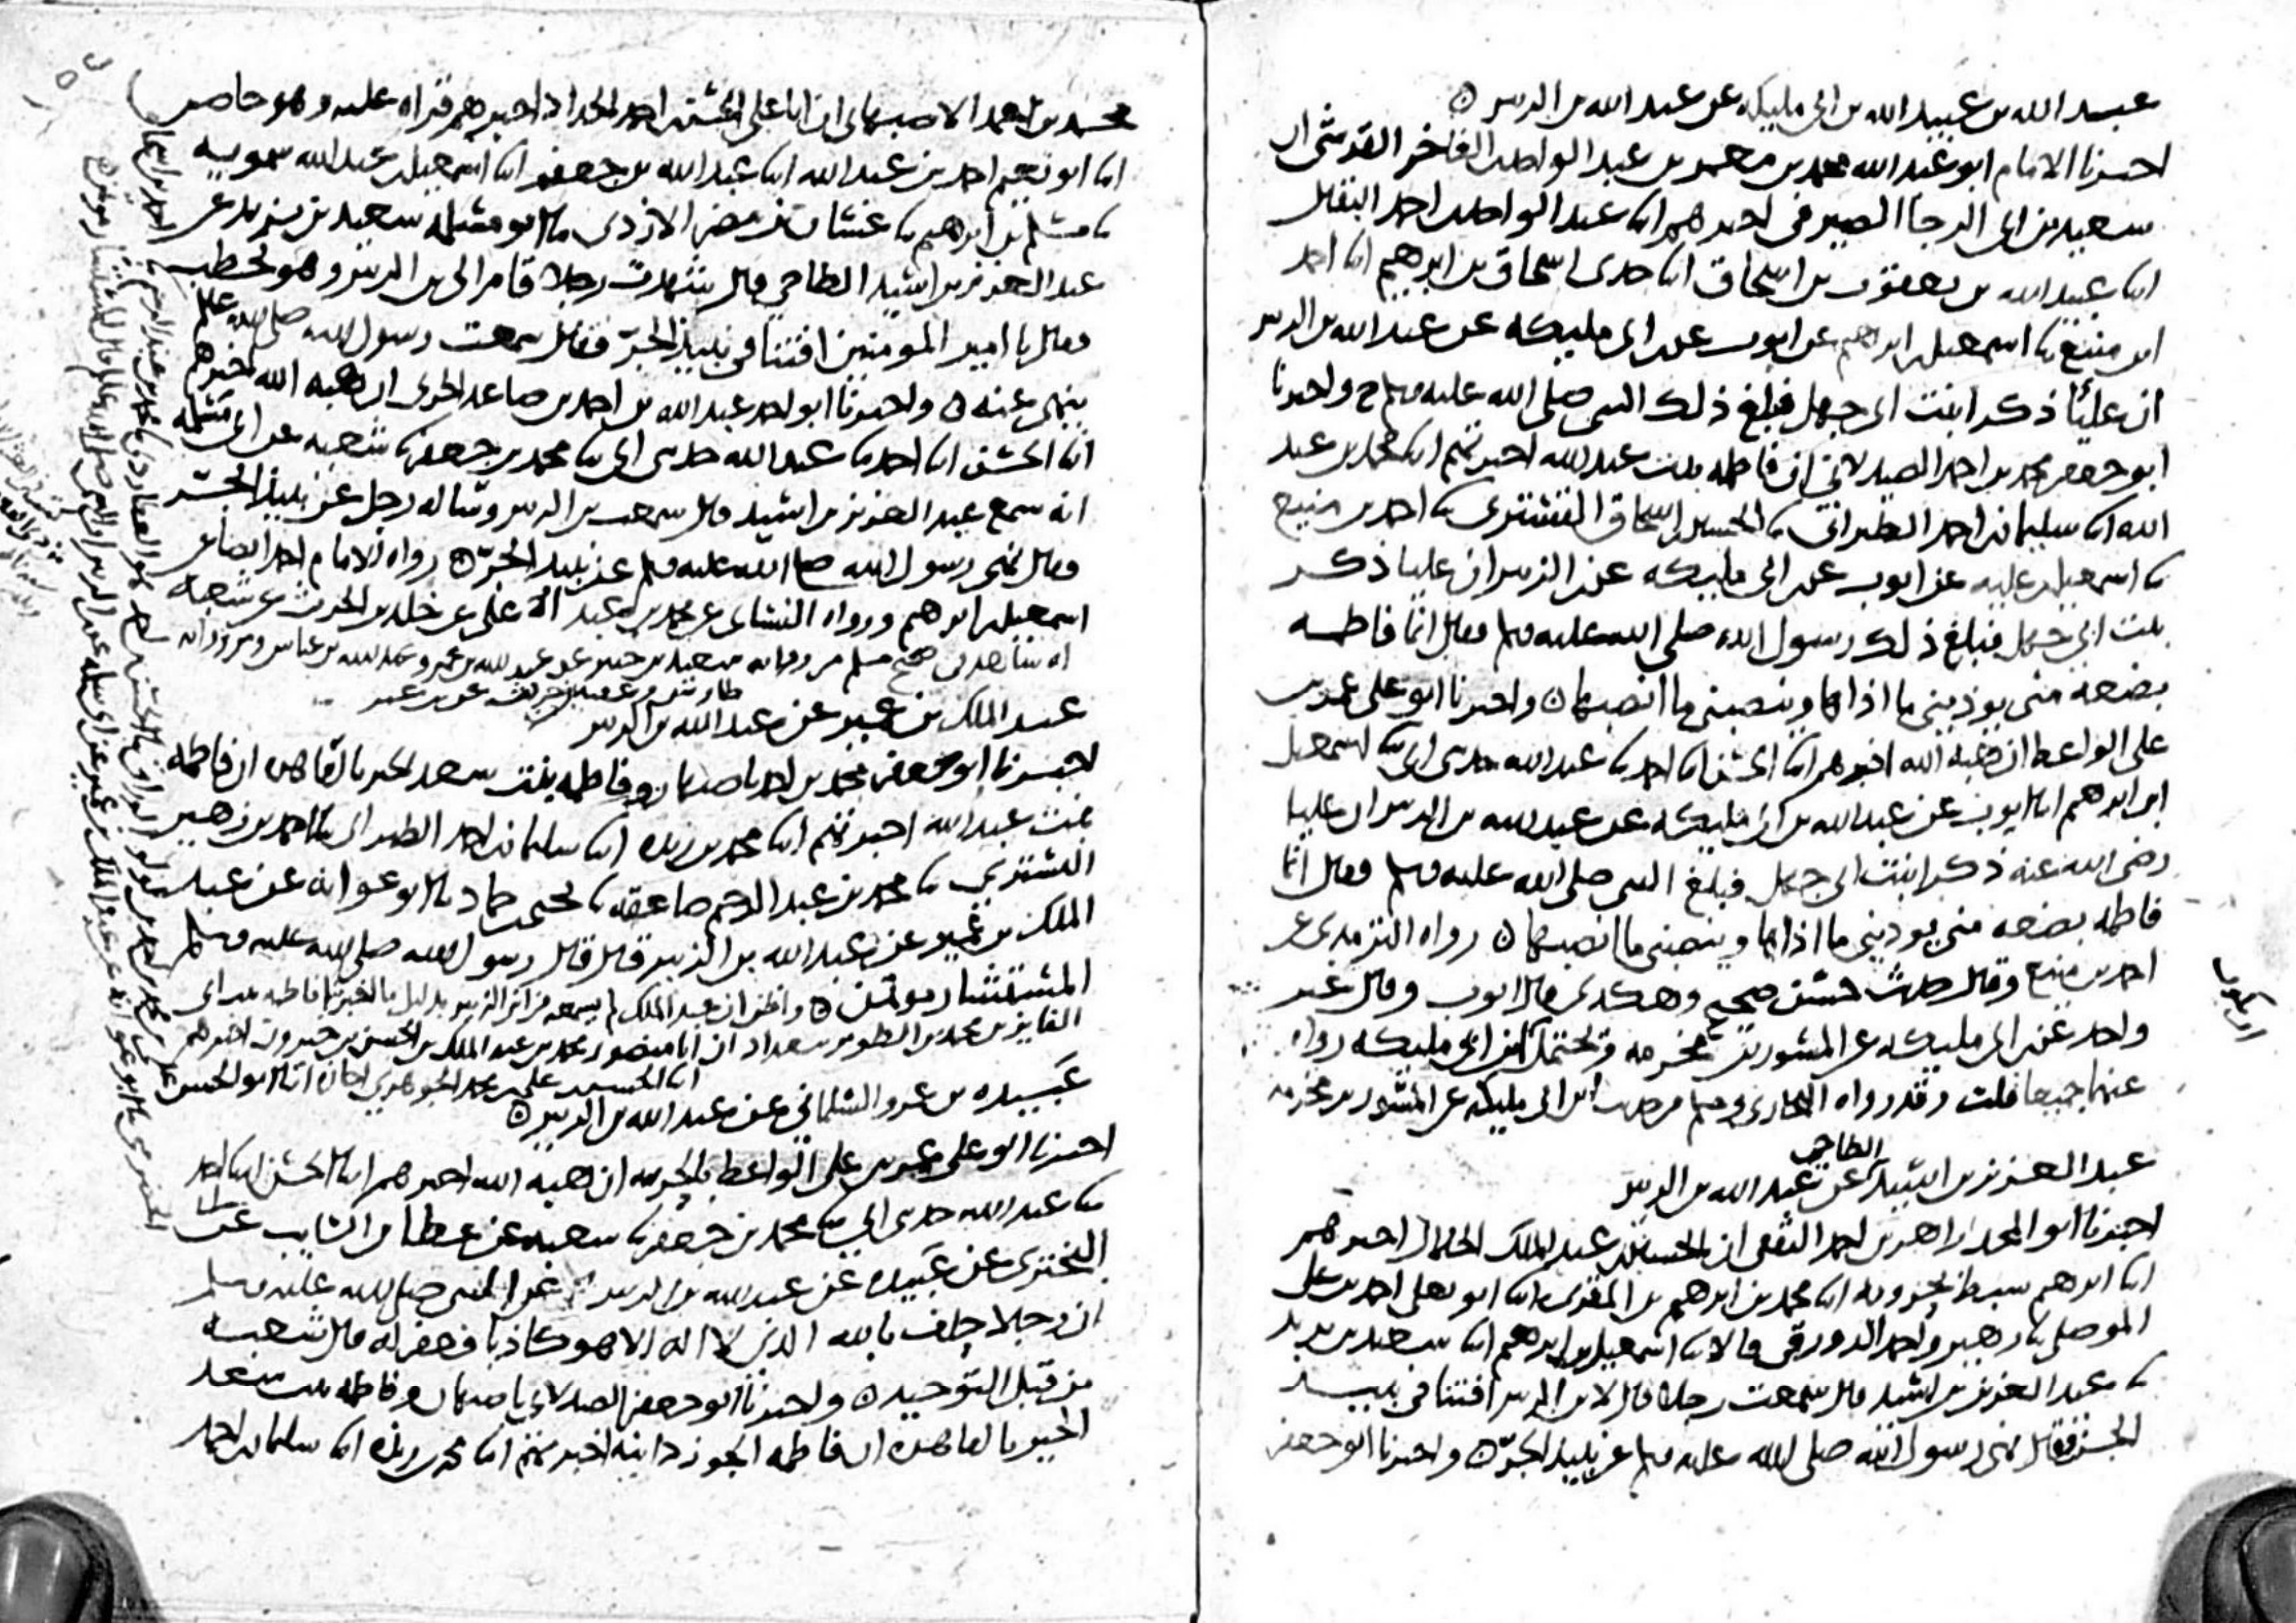 عبد الله بن عبيد الله بن ابي مليكه عن عبد الله بن الزبير
اخبرنا الامام ابو عبد الله محمد بن معمر بن عبد الواحد الفاخر القرشي ان
سعيد بن ابي الرجا الصيرفي اخبرهم انا عبد الواحد احمد البقال
انا عبيد الله بن يعقوب بن اسحاق انا جدي اسحاق بن ابرهيم انا احمد
ابن منيع نا اسمعيل بن ابرهيم عن ايوب عن ابن ابي مليكه عن عبد الله بن الزبير
ان عليا ذكر ابنت ابي جهل فبلغ ذلك النبي صلى الله عليه وسلم ح واخبرنا
ابو جعفر محمد بن احمد الصيدلاني ان فاطمه بنت عبد الله اخبرتهم انا محمد بن عبد
الله انا سليمان بن احمد الطبراني نا الحسين بن اسحاق التستري نا احمد بن منيع
نا اسمعيل بن عليه عن ايوب عن ابن ابي مليكه عن ابن الزبير ان عليا ذكر
بنت ابي جهل فبلغ ذلك رسول الله صلى الله عليه وسلم فقال انما فاطمه
بضعه مني يوذيني ما اذاها وينصبني ما انصبها واخبرنا ابو علي عمر بن
علي الواعظ ان هبه الله اخبرهم انا الحسن انا احمد نا عبد الله حدثني ابي نا اسمعيل
ابن ابرهيم انا ايوب عن عبد الله بن ابي مليكه عن عبد الله بن الزبير ان عليا
رضي الله عنه ذكر ابنت ابي جهل فبلغ النبي صلى الله عليه وسلم فقال انما
فاطمه بضعه مني يوذيني ما اذاها وينصبني ما انصبها رواه الترمذي عن
احمد بن منيع وقال حديث حسن صحيح وهكذى قال ايوب وقال غير
واحد عن ابن ابي مليكه عن المسور بن مخرمه ويحتمل ان ابن ابي مليكه رواه
عنهما جميعا قلت وقد رواه البخاري ومسلم من حديث ابن ابي مليكه عن المسور بن مخرمه
الطاحي
عبد العزيز بن اسيد عن عبد الله بن الزبير
اخبرنا ابو المجد زاهر بن احمد الثقفي ان الحسين بن عبد الملك الخلال اخبرهم
انا ابرهيم سبط بحرويه انا محمد بن ابرهيم بن المقرى انا ابو يعلى احمد بن علي
الموصلي نا زهير واحمد الدورقي قالا نا اسمعيل بن ابرهيم انا سعيد بن يزيد
نا عبد العزيز بن اسيد قال سمعت رجلا قال لابن الزبير افتنا في نبيذ
الجر فقال نهى رسول الله صلى الله عليه وسلم عن نبيذ الجر واخبرنا ابو جعفر
محمد بن احمد الاصبهاني ان ابا علي الحسن بن احمد الحداد اخبرهم قراه عليه وهو حاضر
انا ابو نعيم احمد بن عبد الله انا عبد الله بن جعفر انا اسمعيل بن عبد الله سمويه
نا مسلم بن ابرهيم نا غسان بن مضر الازدي نا ابو مسلمه سعيد بن يزيد عن
عبد العزيز بن اسيد الطاحي قال شهدت رجلا قام الى بن الزبير وهو يخطب
فقال يا امير المومنين افتنا في نبيذ الجر فقال سمعت رسول الله صلى الله عليه وسلم
ينهى عنه واخبرنا ابو احمد عبد الله بن احمد بن صاعد الحربي ان هبه الله اخبرهم
انا الحسن انا احمد نا عبد الله حدثني ابي نا محمد بن جعفر نا شعبه عن ابي مسلمه
انه سمع عبد العزيز بن اسيد قال سمعت بن الزبير وساله رجل عن نبيذ الجر
فقال نهى رسول الله صلى الله عليه وسلم عن نبيذ الجر رواه الامام احمد ايضا عن
اسمعيل بن ابرهيم ورواه النسائي عن محمد بن عبد الاعلى عن خالد بن الحرث عن شعبه
له شاهد في صحيح مسلم من روايه سعيد بن جبير عن عبد الله بن عمر وعبد الله بن عباس ومن روايه
طاوس وعقبه بن حريث عن بن عمر
عبد الملك بن عمير عن عبد الله بن الزبير
اخبرنا ابو جعفر محمد بن احمد باصبهان وفاطمه بنت سعد الخير بالقاهره ان فاطمه
بنت عبد الله اخبرتهم انا محمد بن ريذه انا سليمان بن احمد الطبراني نا احمد بن زهير
التستري نا محمد بن عبد الرحيم صاعقه نا يحيى بن حماد نا ابو عوانه عن عبد
الملك بن عمير عن عبد الله بن الزبير قال قال رسول الله صلى الله عليه وسلم
المستشار موتمن واظن ان عبد الملك لم يسمعه من ابن الزبير بدليل ما اخبرتنا فاطمه بنت ابي
الفايز بن محمد بن الطوير ببغداد ان ابا منصور محمد بن عبد الملك بن الحسن بن خيرون اخبرهم
انا الحسن بن علي بن محمد الجوهري اجازه انا ابو الحسن علي بن محمد بن احمد بن لولو الوراق
عبيده بن عمرو السلماني عن عبد الله بن الزبير
اخبرنا ابو علي عمر بن علي الواعظ بالحربيه ان هبه الله اخبرهم انا الحسن انا احمد
نا عبد الله حدثني ابي نا محمد بن جعفر نا شعبه عن عطا بن السايب عن ابي
البختري عن عبيده عن عبد الله بن الزبير عن النبي صلى الله عليه وسلم
ان رجلا حلف بالله الذي لا اله الا هو كاذبا فغفر له قال شعبه
من قبل التوحيد واخبرنا ابو جعفر الصيدلاني باصبهان وفاطمه بنت سعد
الخير بالقاهره ان فاطمه الجوزدانيه اخبرتهم انا محمد بن ريذه انا سليمان بن احمد